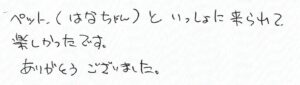 ペット、(はなちゃん)と いっしょに来られて
楽しかったです。
ありがとう ございました。